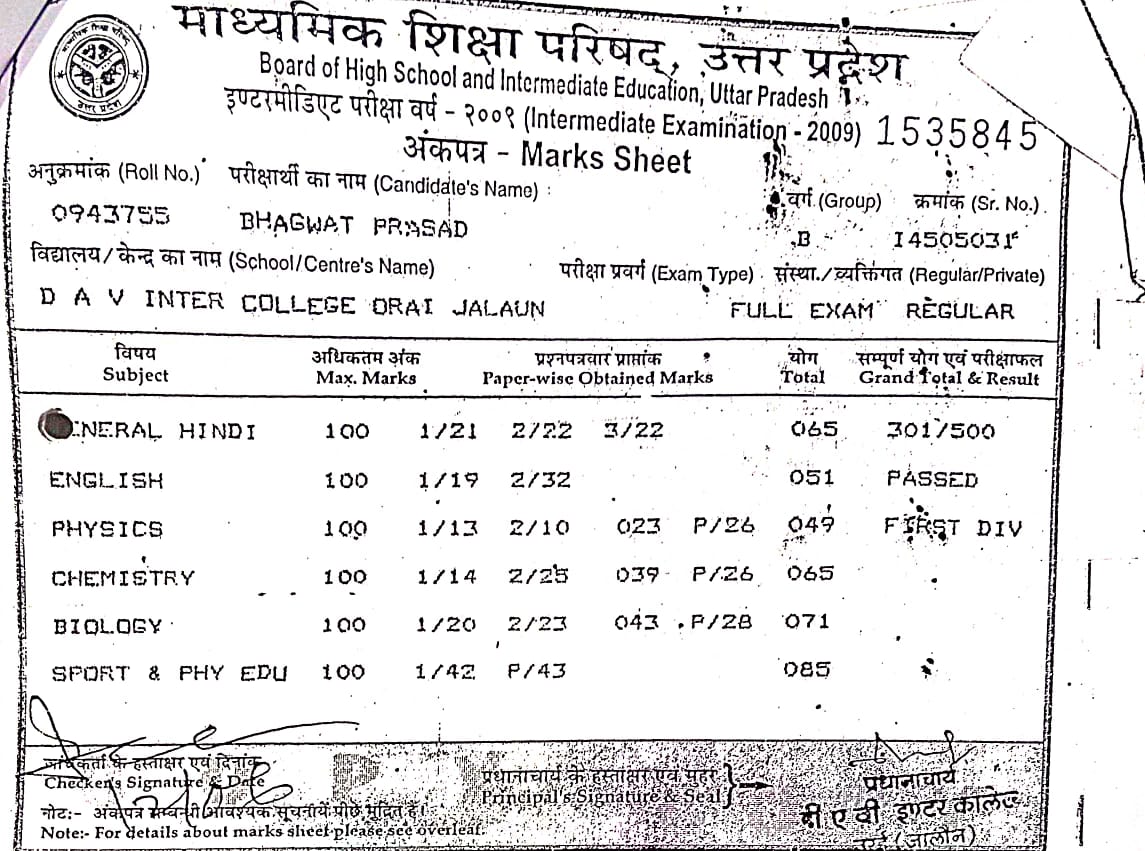 माध्यमिक शिक्षा परिषद्, उत्तर प्रदेश
Board of High School and Intermediate Education, Uttar Pradesh
इण्टरमीडिएट परीक्षा वर्ष - २००९ (Intermediate Examination - 2009) 1535845
अंकपत्र - Marks Sheet
अनुक्रमांक (Roll No.) परीक्षार्थी का नाम (Candidate's Name) : वर्ग (Group) क्रमांक (Sr. No.)
0943755 BHAGWAT PRASAD B I4505031
विद्यालय/केन्द्र का नाम (School/Centre's Name) परीक्षा प्रवर्ग (Exam Type) संस्था./व्यक्तिगत (Regular/Private)
D A V INTER COLLEGE ORAI JALAUN FULL EXAM REGULAR
विषय अधिकतम अंक प्रश्नपत्रवार प्राप्तांक योग सम्पूर्ण योग एवं परीक्षाफल
Subject Max. Marks Paper-wise Obtained Marks Total Grand Total & Result
ENERAL HINDI 100 1/21 2/22 3/22 065 301/500
ENGLISH 100 1/19 2/32 051 PASSED
PHYSICS 100 1/13 2/10 023 P/26 049 FIRST DIV
CHEMISTRY 100 1/14 2/25 039 P/26 065
BIOLOGY 100 1/20 2/23 043 P/28 071
SPORT & PHY EDU 100 1/42 P/43 085
के हस्ताक्षर एवं दिनांक प्रधानाचार्य के हस्ताक्षर एवं मुहर प्रधानाचार्य
Checker's Signature & Date Principal's Signature & Seal डी ए वी इण्टर कालेज
नोट:- अंकपत्र सम्बन्धी आवश्यक सूचनायें पीछे मुद्रित हैं। (जालौन)
Note:- For details about marks sheet please see overleaf.